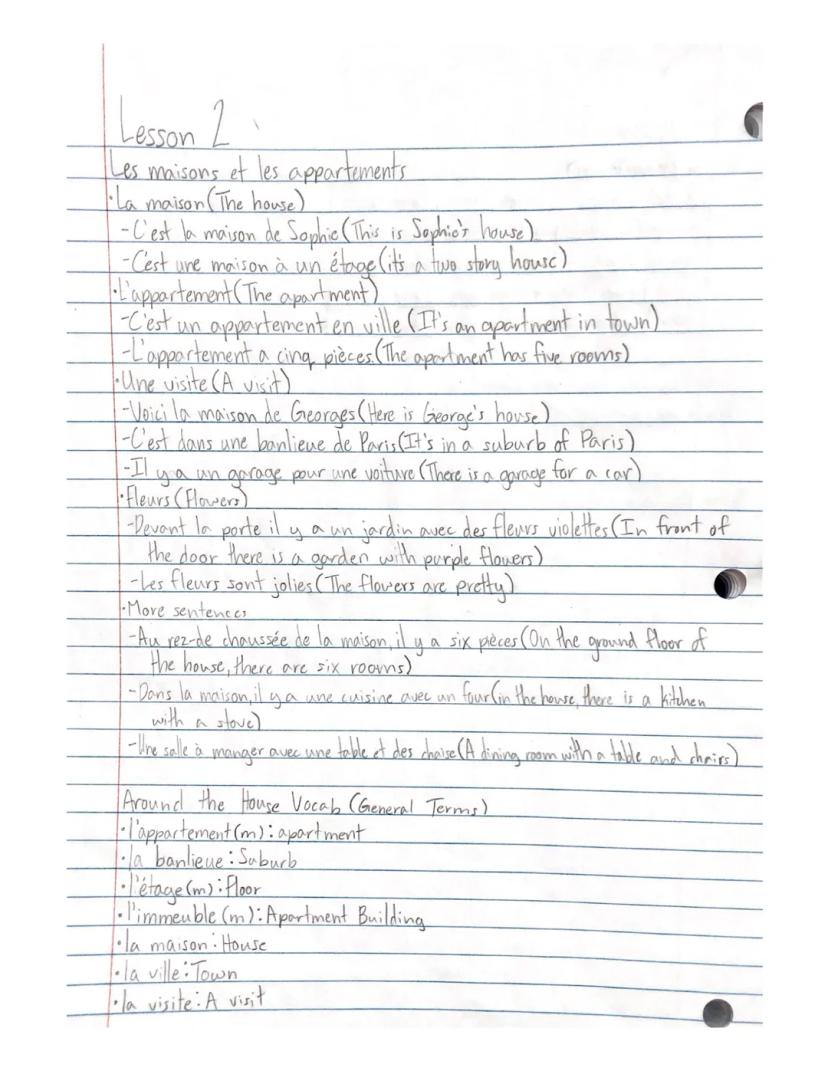 Lesson 2
Les maisons et les appartements
·La maison (The house)
-C'est la maison de Sophie (This is Sophie's house)
-C'est une maison à un étage (it's a two story house)
·L'appartement (The apartment)
-C'est un appartement en ville (It's an apartment in town)
-L'appartement a cinq pièces (The apartment has five rooms)
·Une visite (A visit)
-Voici la maison de Georges (Here is George's house)
-C'est dans une banlieue de Paris (It's in a suburb of Paris)
-Il y a un garage pour une voiture (There is a garage for a car)
·Fleurs (Flowers)
-Devant la porte il y a un jardin avec des fleurs violettes (In front of
the door there is a garden with purple flowers)
-Les fleurs sont jolies (The flowers are pretty)
·More sentences
-Au rez-de chaussée de la maison, il y a six pièces (On the ground floor of
the house, there are six rooms)
-Dans la maison, il y a une cuisine avec un four (in the house, there is a kitchen
with a stove)
-Une salle à manger avec une table et des chaise (A dining room with a table and chairs)
Around the House Vocab (General Terms)
·l'appartement (m): apartment
·la banlieue: Suburb
·l'étage (m): Floor
·l'immeuble (m): Apartment Building
·la maison: House
·la ville: Town
·la visite: A visit